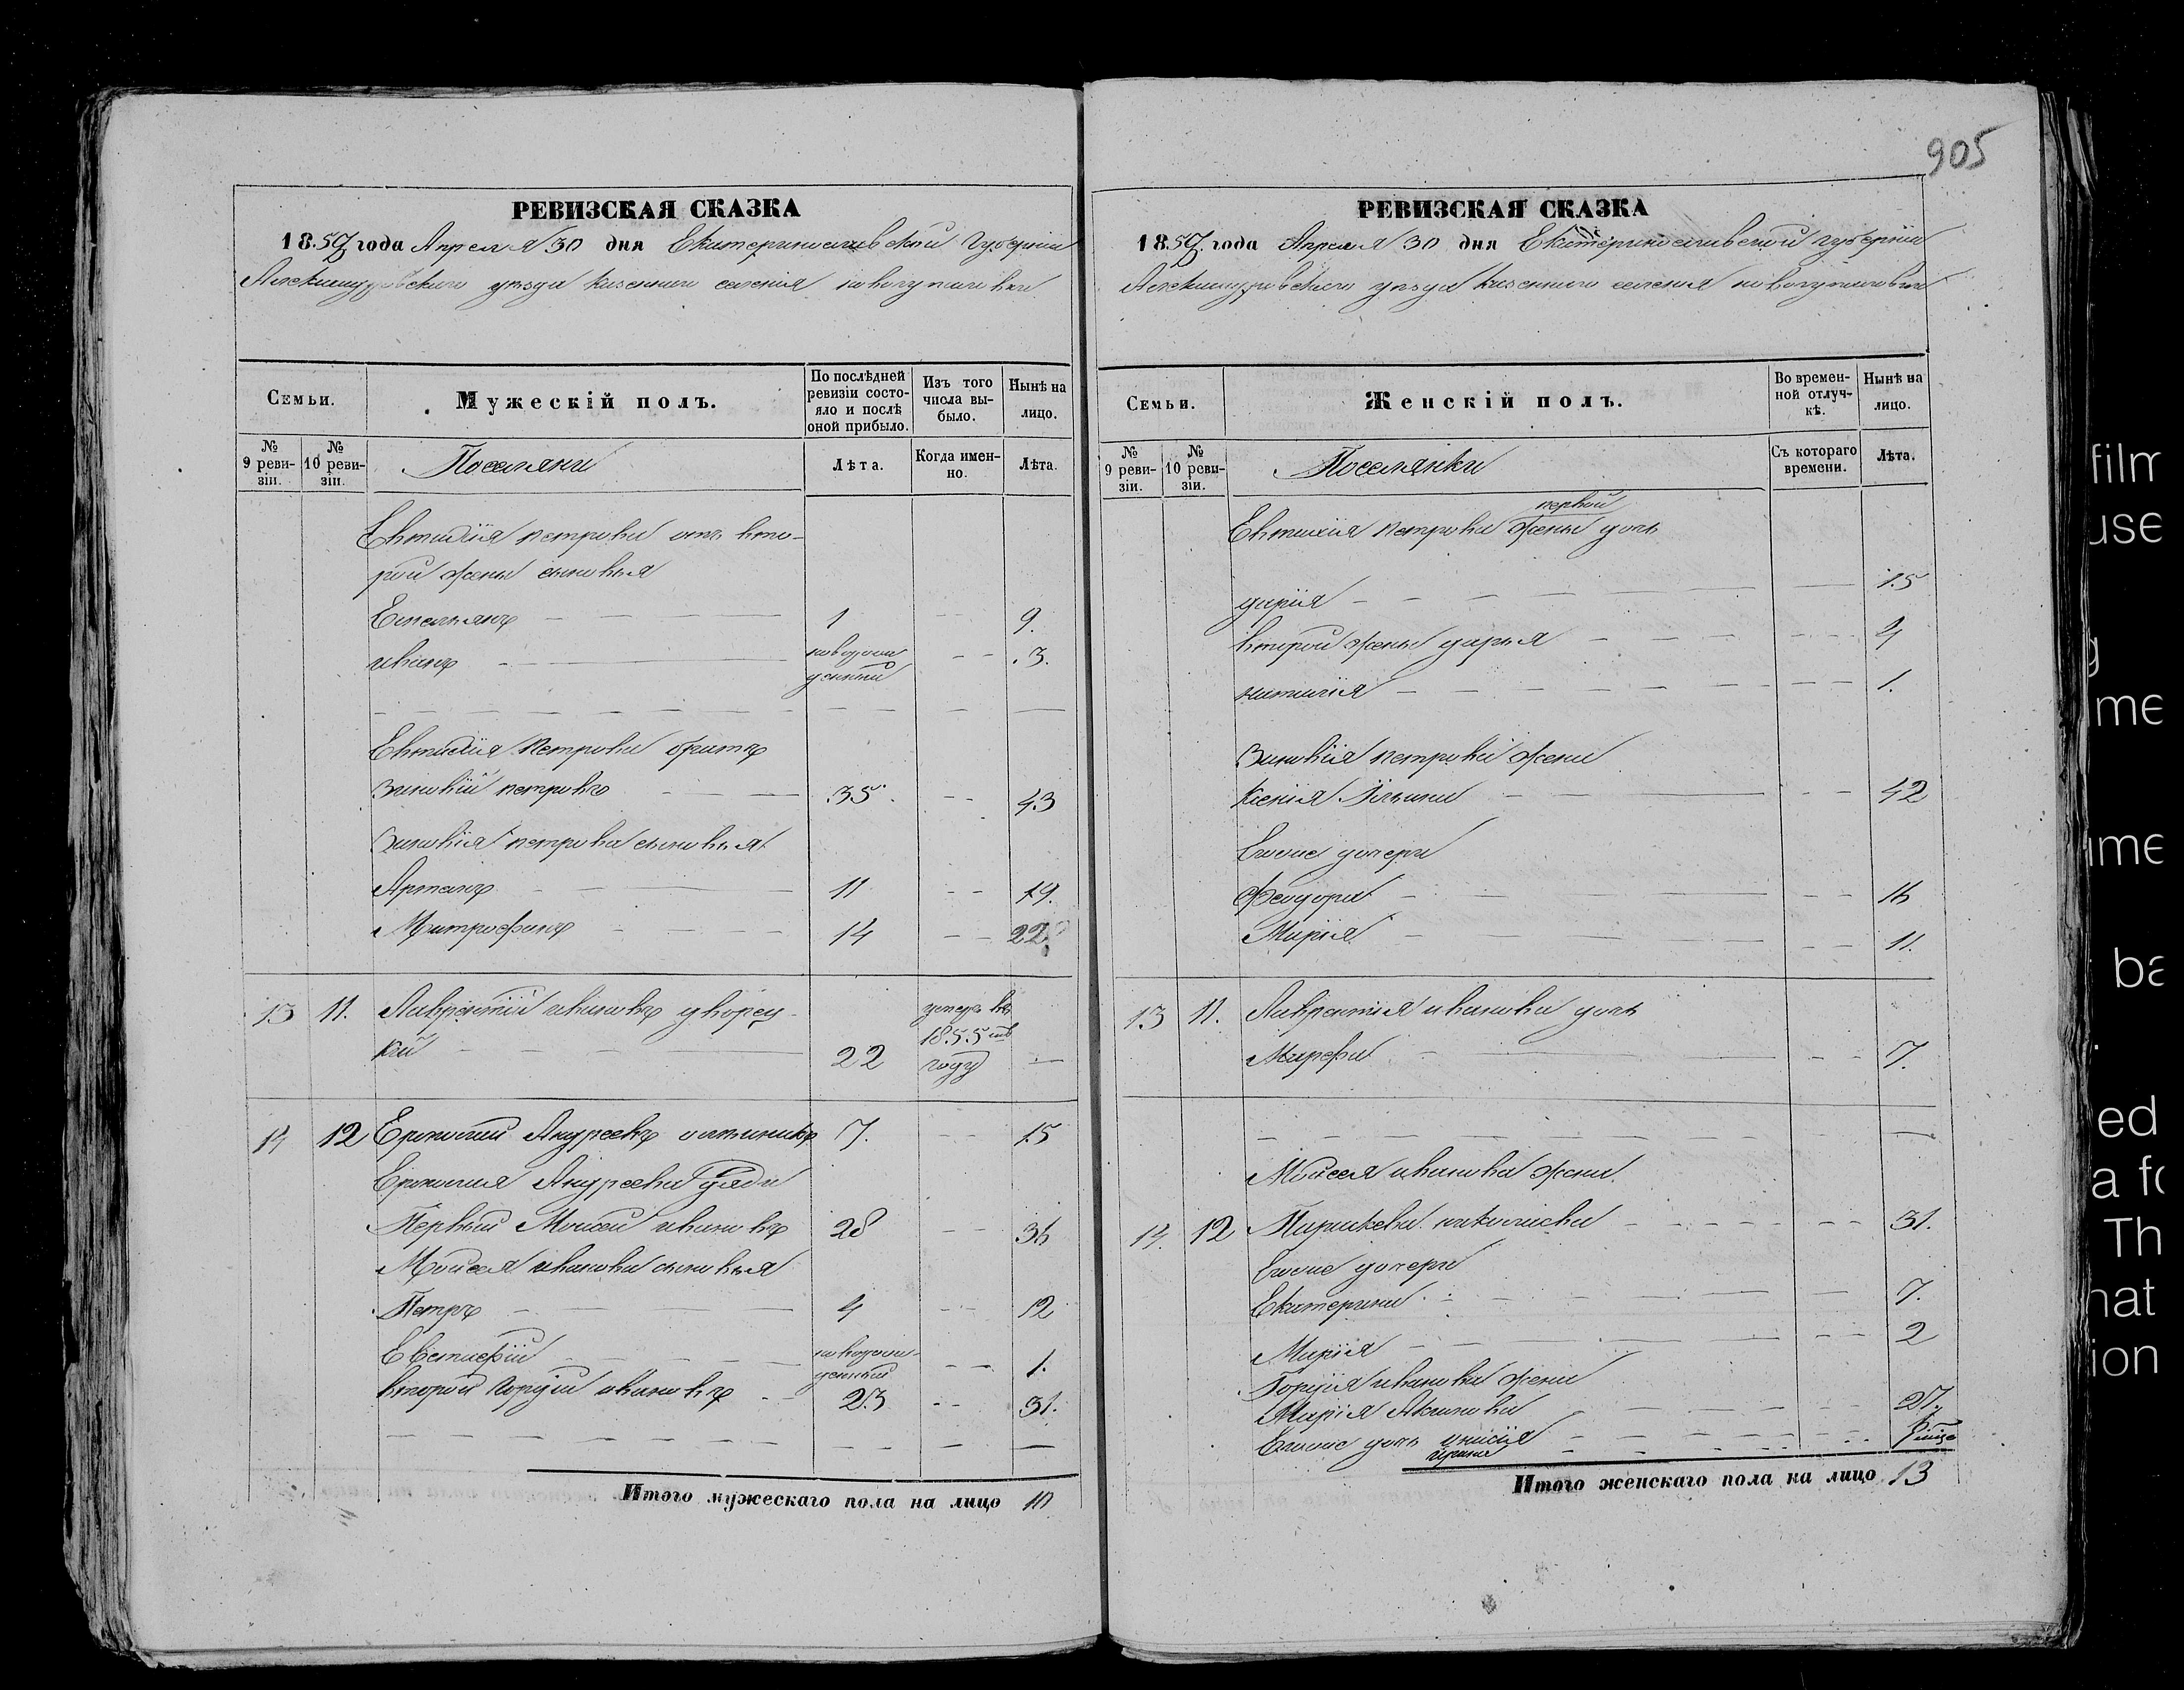 905
РЕВИЗСКАЯ СКАЗКА
1857 года Апреля 30 дня Екатеринославской Губерніи
Александровскаго уезда казеннаго селенія
Семьи.
Мужескій полъ.
По послѣдней ревизіи состояло и послѣ оной прибыло.
Изъ того числа выбыло.
Нынѣ на лицо.
№ 9 ревизіи.
№ 10 ревизіи.
Поселяни
Лѣта.
Когда именно.
Лѣта.
Евтихія петрова отъ вто-
рой жены сыновья
Емельянъ 1 9.
иванъ новорож- 3.
денный
Евтихія Петрова братъ
Зиновій петровъ 35. 43
Зиновія петрова сыновья
Артемъ 11 19.
Митрофанъ 14 22
13 11. Лаврентій ивановъ дворец- умеръ въ
кій 22 1855мъ —
году
14 12 Ермолай Андреевъ 7. 15
Ермолая Андреева дяди
Первый Моисей ивановъ 28 36
Моисея иванова сыновья
Петръ 4 12
Евстафій новорож- 1.
денный
второй Гордей ивановъ 23 31.
Итого мужескаго пола на лицо 10
РЕВИЗСКАЯ СКАЗКА
1857 года Апреля 30 дня Екатеринославской губерніи
Александровскаго уезда казеннаго селенія
Семьи.
Женскій полъ.
Во временной отлучкѣ.
Нынѣ на лицо.
№ 9 ревизіи.
№ 10 ревизіи.
Поселянки
Съ котораго времени.
Лѣта.
первой
Евтихія петрова жены дочь
дарія 15
второй жены дарья 4
наталія 1.
Зиновія петрова жена
Ксенія 42
Ихъ дочери
Феодора 16
Марія 11.
13 11. Лаврентія иванова дочь
Марфа 7.
Моисея иванова жена
14. 12 Параскева 31.
Екатерина 7.
Марія 2
Гордея иванова жена
Марія 27.
дочь
Итого женскаго пола на лицо 13
film
use
me
ba
ed
a fo
Th
hat
ion